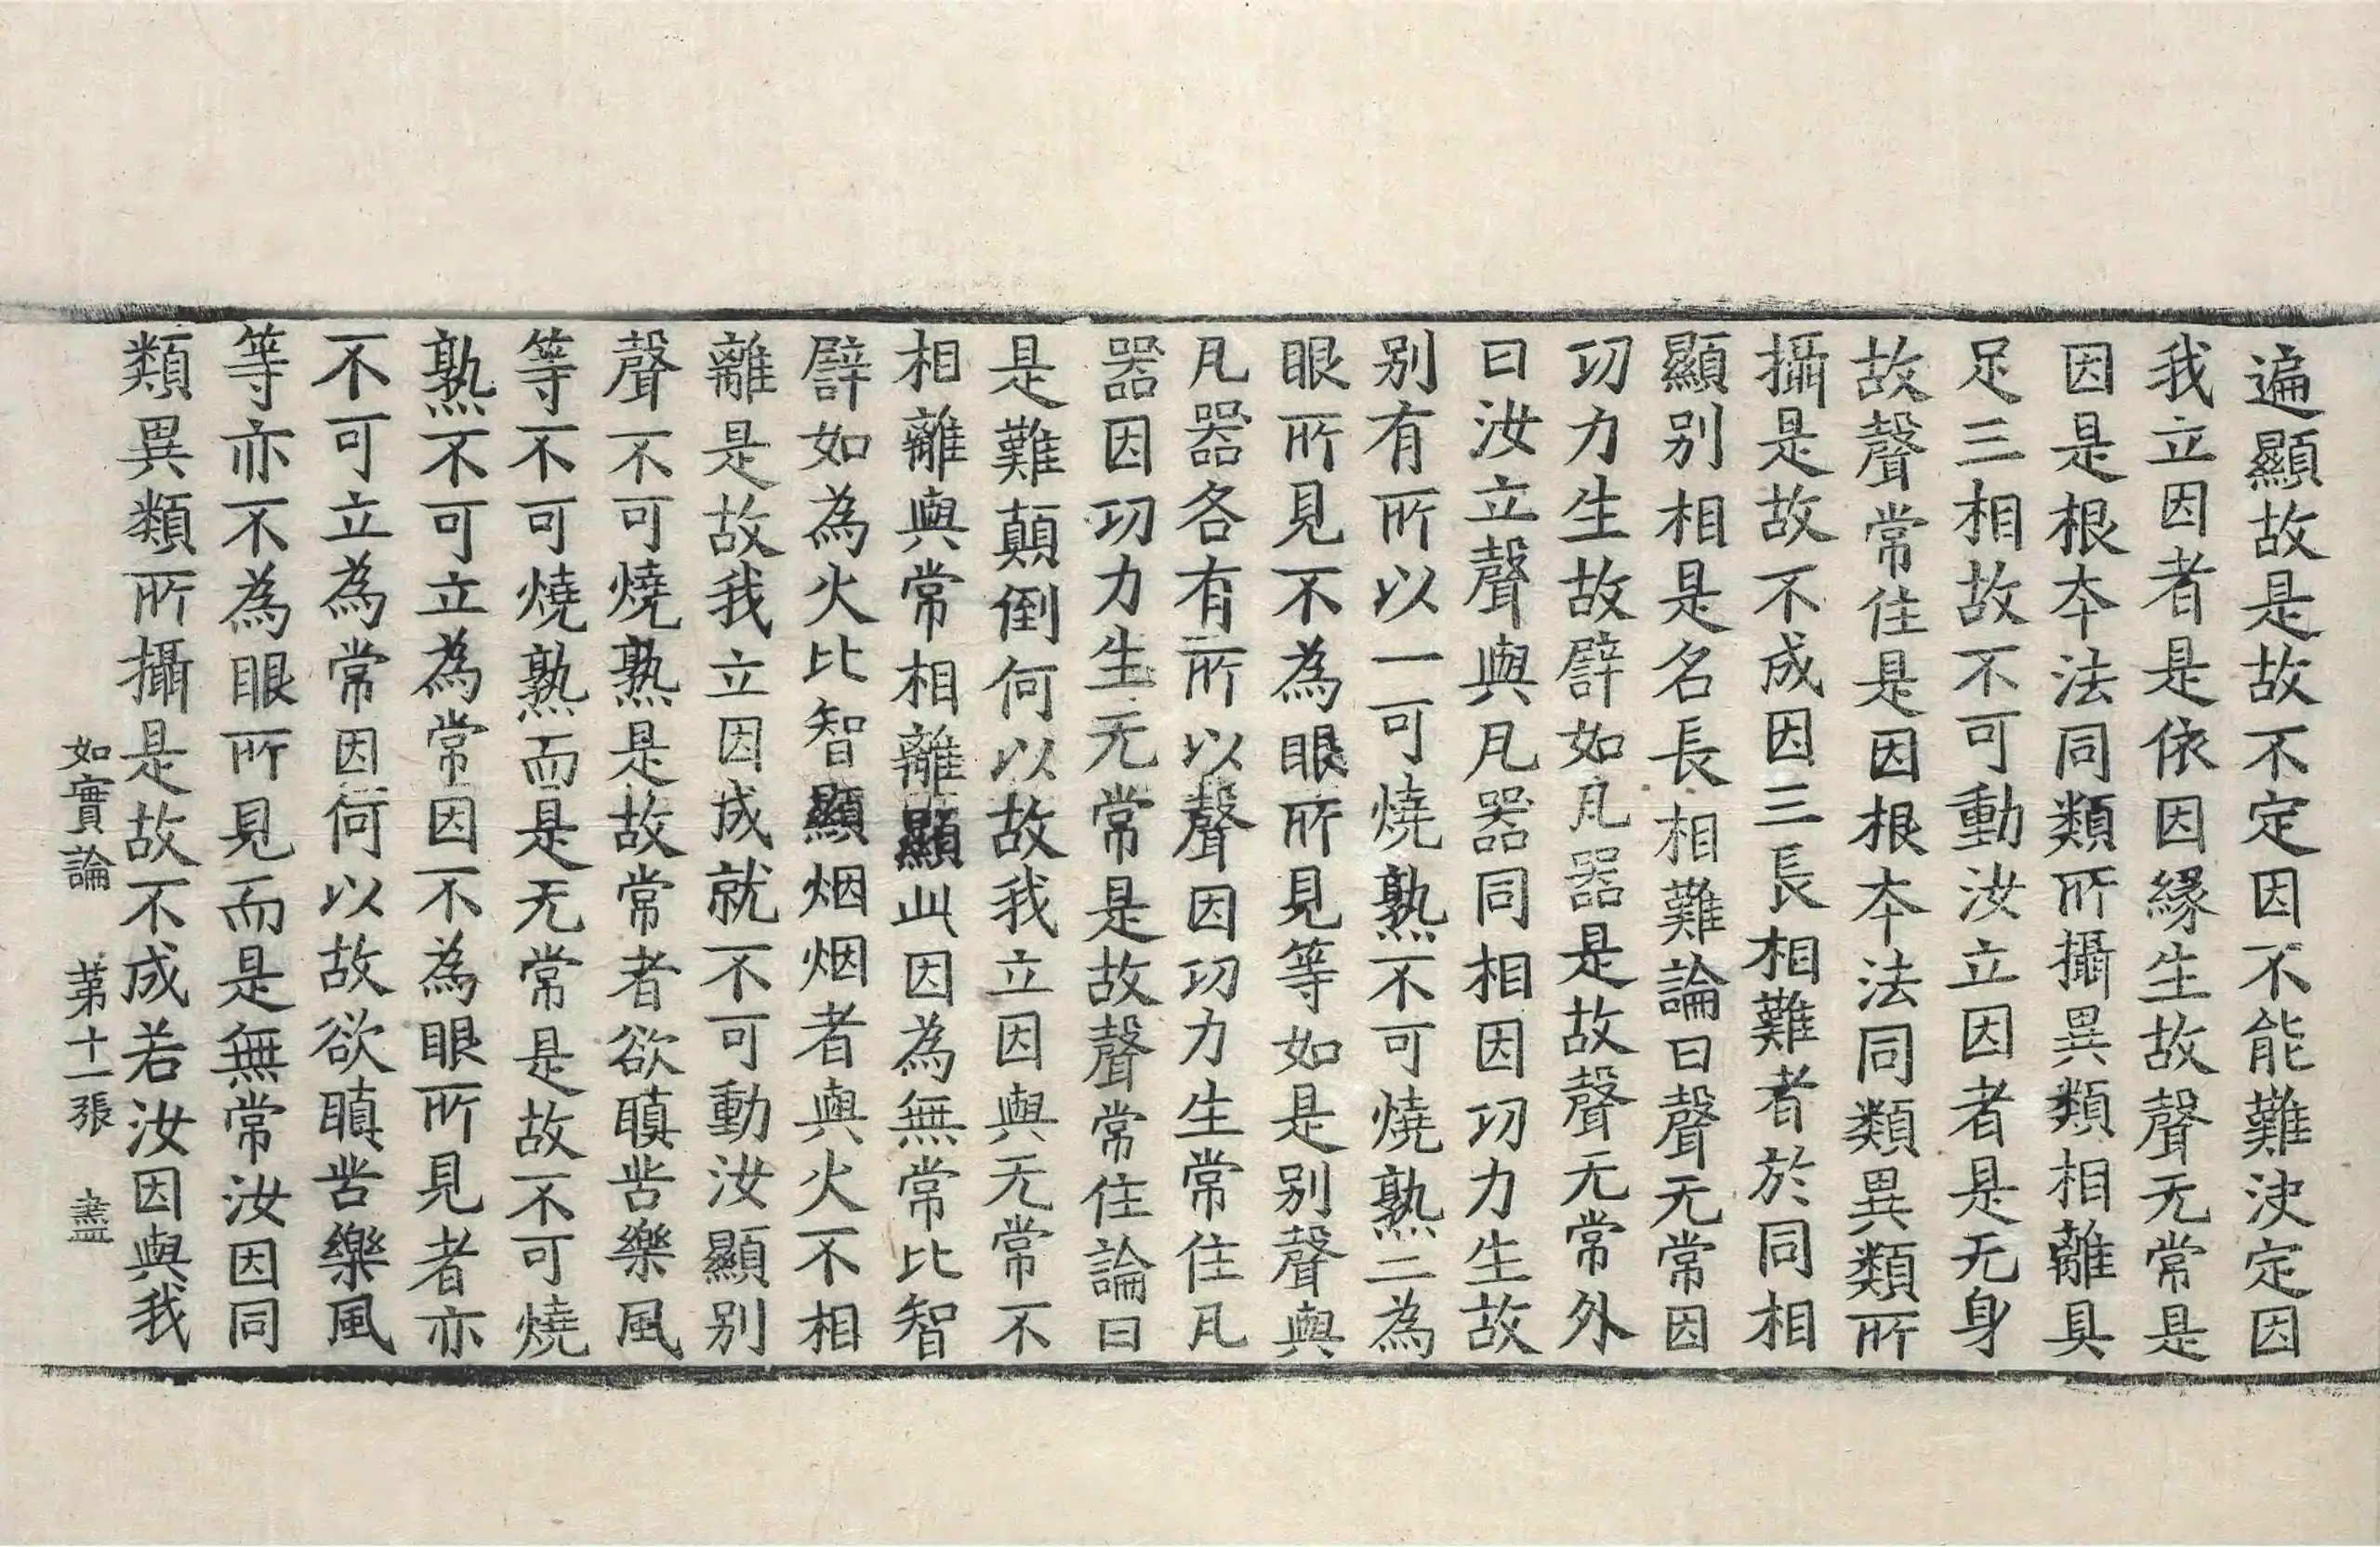 遍顯故是故不定因不能難決定因
我立因者是依因緣生故聲无常是
因是根夲法同類所攝異類相離具
足三相故不可動汝立因者是无身
故聲常住是因根夲法同類異類所
攝是故不成因三長相難者於同相
顯别相是名長相難論曰聲无常因
功力生故譬如凡器是故聲无常外
曰汝立聲與凡器同相因功力生故
别有所以一可燒熟不可燒熟二為
眼所見不為眼所見等如是别聲與
凡器各有所以聲因功力生常住凡
器因功力生无常是故聲常住論曰
是難顛倒何以故我立因與无常不
相離與常相離顯此因為無常比智
譬如為火比智顯烟烟者與火不相
離是故我立因成就不可動汝顯别
聲不可燒熟是故常者欲瞋苦樂風
等不可燒熟而是无常是故不可燒
熟不可立為常因不為眼所見者亦
不可立為常因何以故欲瞋苦樂風
等亦不為眼所見而是無常汝因同
類異類所攝是故不成若汝因與我
如實論 第十一張 盡